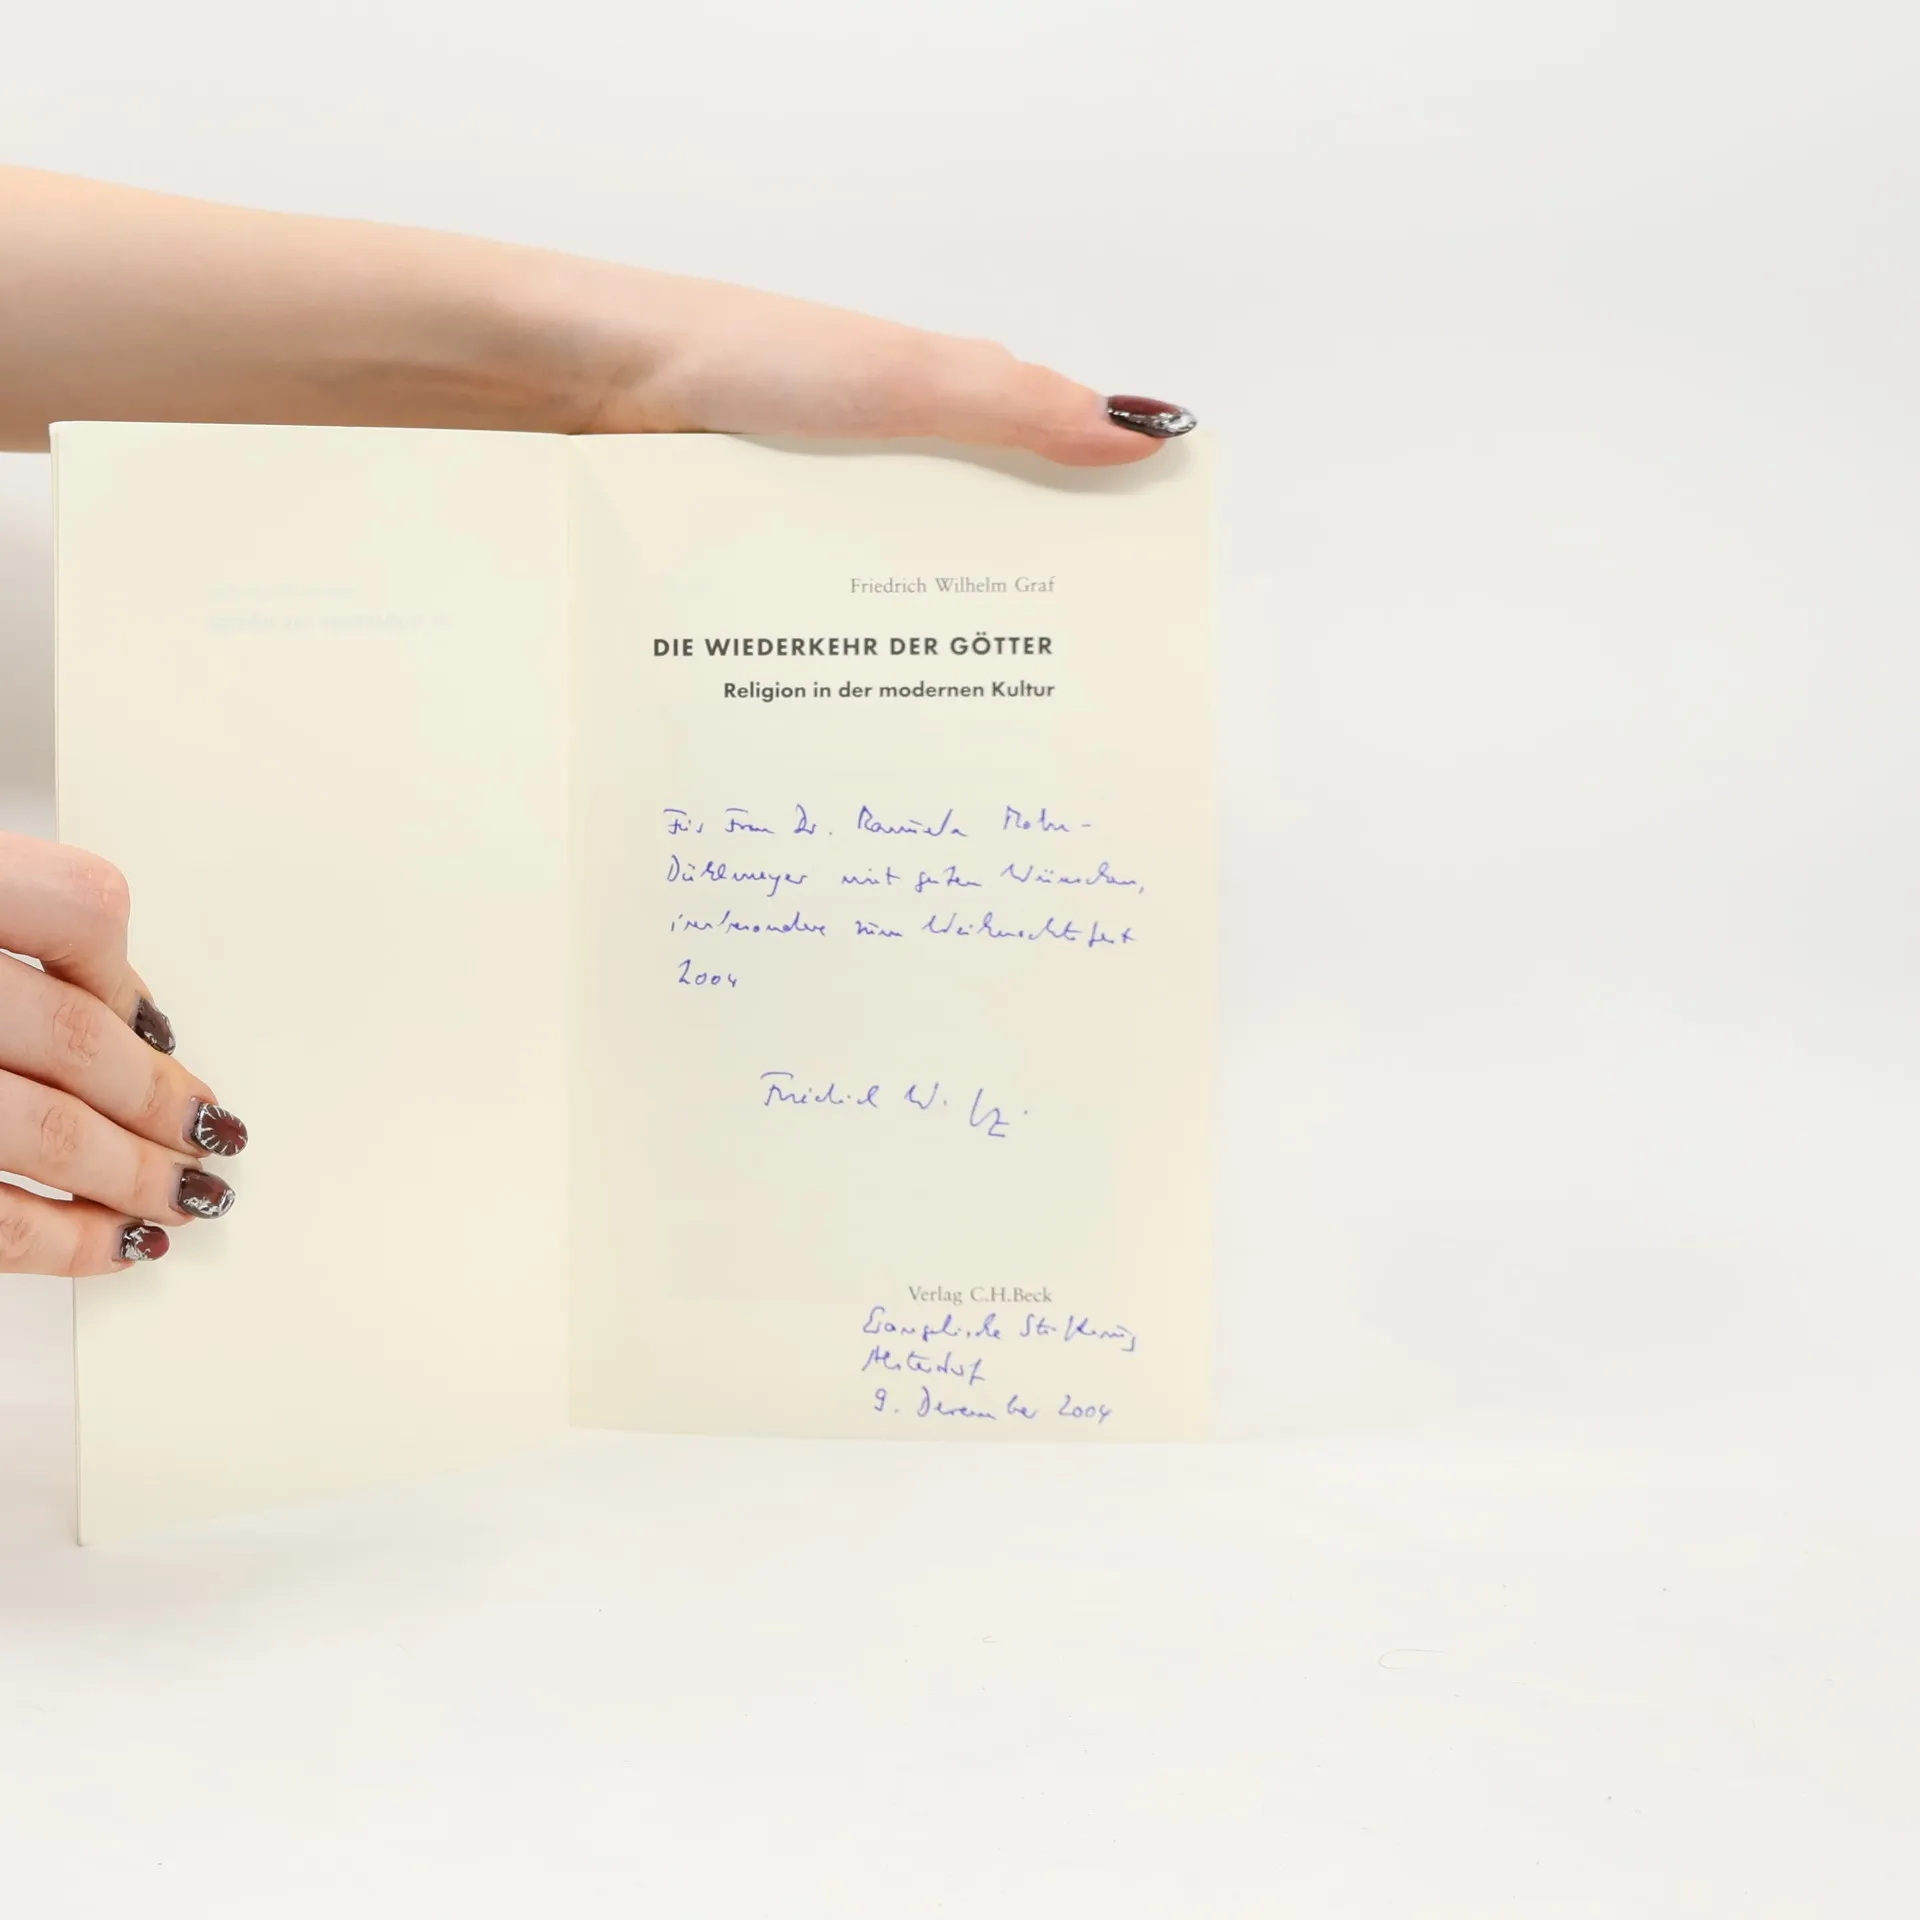 Friedrich Wilhelm Graf
DIE WIEDERKEHR DER GÖTTER
Religion in der modernen Kultur
Für Frau Dr.
mit guten Wünschen,
insbesondere zum Weihnachtsfest
2004
Friedrich W. 
Verlag C.H.Beck
Evangelische Stiftung
Alsterdorf
9. Dezember 2004